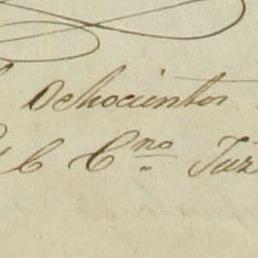 Ochocientos
C. C.no Juz